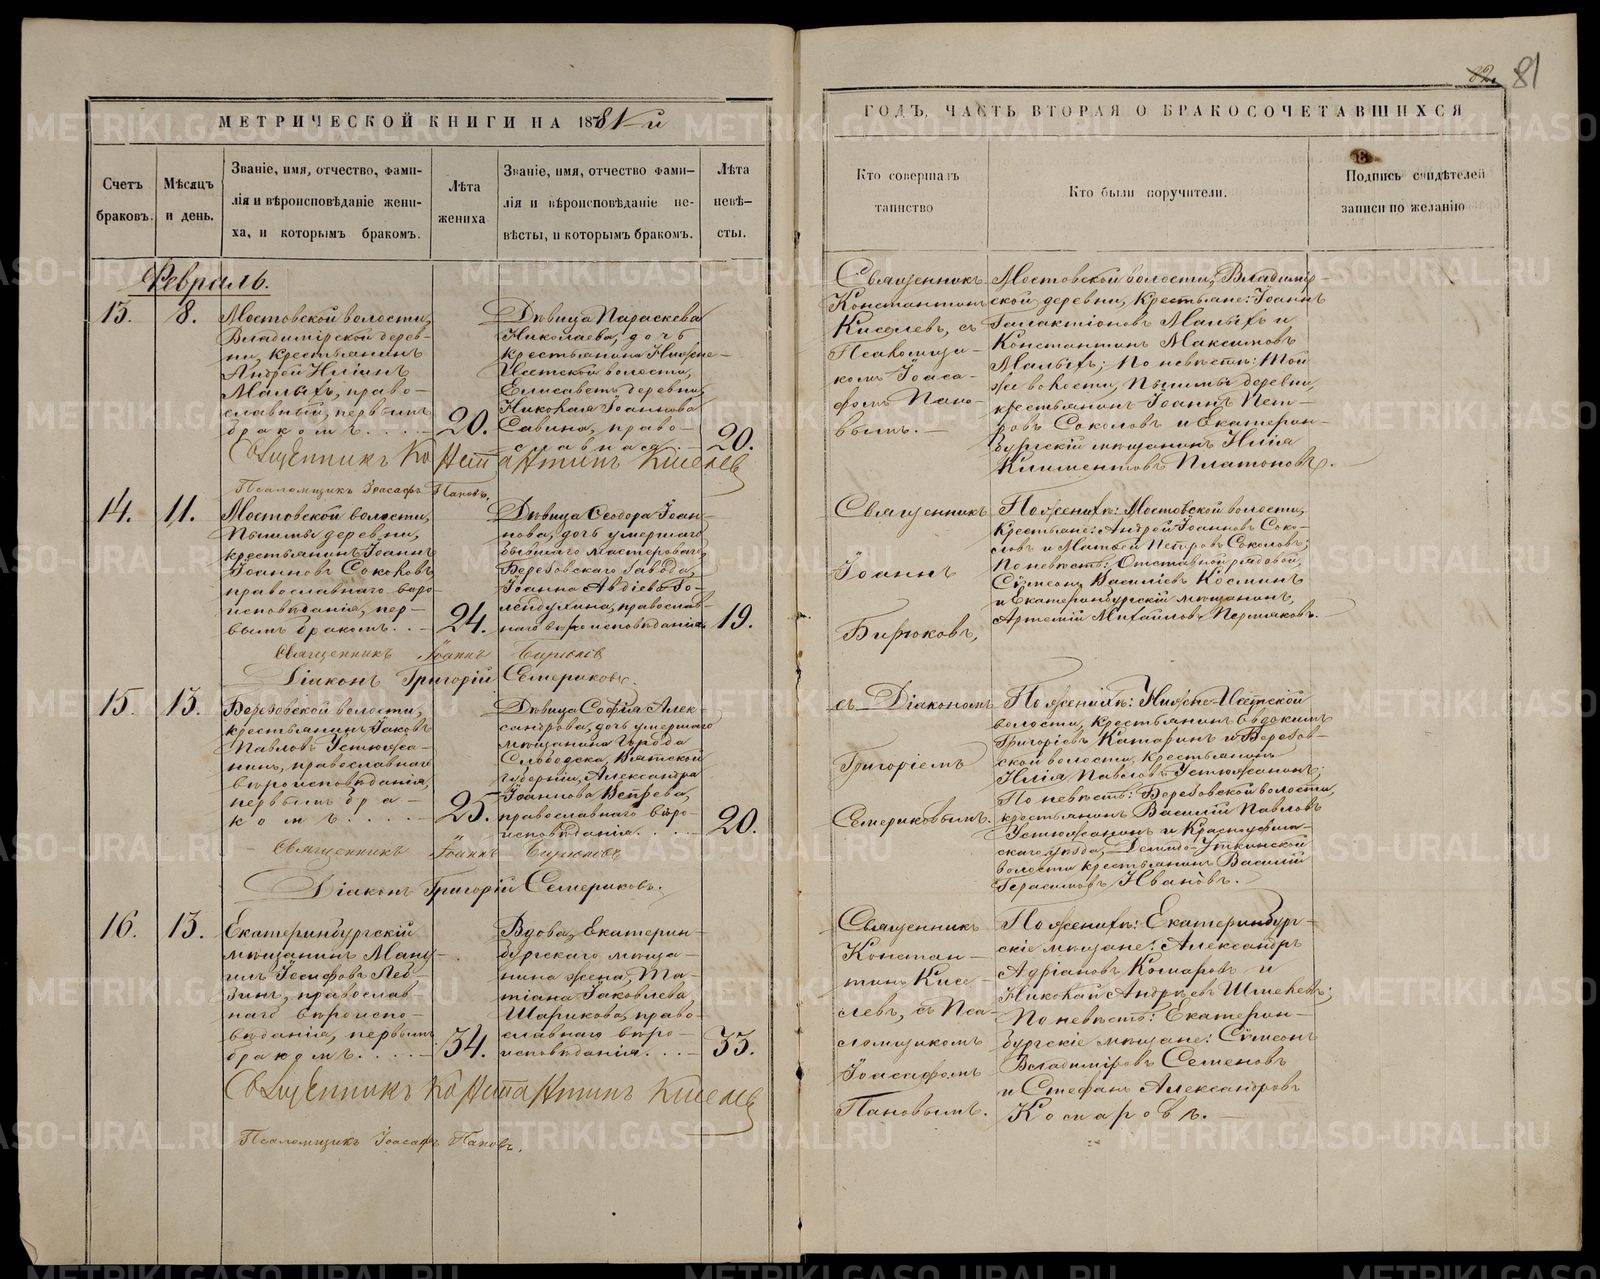 82. 81
МЕТРИЧЕСКОЙ КНИГИ НА 1881-й
ГОДЪ, ЧАСТЬ ВТОРАЯ О БРАКОСОЧЕТАВШИХСЯ
Счетъ
браковъ.
Мѣсяцъ
и день.
Званіе, имя, отчество, фами-
лія и вѣроисповѣданіе жени-
ха, и которымъ бракомъ.
Лѣта
жениха
Званіе, имя, отчество фами-
лія и вѣроисповѣданіе не-
вѣсты, и которымъ бракомъ.
Лѣта
невѣ-
сты.
Кто совершалъ
таинство
Кто были поручители.
Подпись свидѣтелей
записи по желанію
Февраль.
13.
8.
Мостовской волости,
Владимірской дерев-
ни, крестьянинъ
Андрей Ильинъ
Малыхъ, право-
славный, первымъ
бракомъ.....
20.
Дѣвица Параскева
Николаева, дочь
крестьянина Нижне-
Исетской волости,
Елисаветъ деревни,
Николая Іоаннова
Савина, право-
славная...
20.
Священникъ
Константинъ
Киселевъ, съ
Псаломщи-
комъ Іоаса-
фомъ Пано-
вымъ.
Мостовской волости, Владимір-
ской деревни, крестьяне: Іоаннъ
Галактіоновъ Малыхъ и
Константинъ Максимовъ
Малыхъ; По невѣстѣ: той
же волости, Пышмы деревни
крестьянинъ Іоаннъ Пет-
ровъ Соколовъ и Екатерин-
бургскій мѣщанинъ Илія
Климентовъ Платоновъ.
Священникъ Константинъ Киселевъ
Псаломщикъ Іоасафъ Пановъ.
14.
11.
Мостовской волости,
Пышмы деревни,
крестьянинъ Іоаннъ
Іоанновъ Соколовъ,
православнаго вѣро-
исповѣданія, пер-
вымъ бракомъ...
24.
Дѣвица Ѳеодора Іоан-
нова, дочь умершаго
бывшаго мастероваго
Березовскаго завода,
Іоанна Авдіева Го-
лендухина, православ-
наго вѣроисповѣданія
19.
Священникъ
Іоаннъ
Бирюковъ,
По женихѣ: Мостовской волости,
крестьяне: Андрей Іоанновъ Соко-
ловъ и Матвей Петровъ Соколовъ;
По невѣстѣ: Отставной рядовой,
Сѵмеонъ Василіевъ Косминъ
и Екатеринбургскій мѣщанинъ,
Артемій Михайловъ Пермяковъ.
Священникъ Іоаннъ Бирюковъ
Діаконъ Григорій Семериковъ.
15.
13.
Березовской волости,
крестьянинъ Іаковъ
Павловъ Устюжа-
нинъ, православнаго
вѣроисповѣданія,
первымъ бра-
комъ.....
25.
Дѣвица Софія Алек-
сандрова, дочь умершаго
мѣщанина города
Слободска, Вятской
губерніи, Александра
Іоаннова
православнаго вѣро-
исповѣданія....
20.
съ Діакономъ
Григоріемъ
Семериковымъ.
По женихѣ: Нижне-Исетской
волости, крестьянинъ Евдокимъ
Григоріевъ Катаринъ и Березов-
ской волости, крестьянинъ
Илія Павловъ Устюжанинъ;
По невѣстѣ: Березовской волости,
крестьянинъ Василій Павловъ
Устюжанинъ и Красноуфим-
скаго уѣзда, Демидо-Уткинской
волости крестьянинъ Василій
Герасимовъ Ивановъ.
Священникъ Іоаннъ Бирюковъ
Діаконъ Григорій Семериковъ.
16.
13.
Екатеринбургскій
мѣщанинъ Ману-
илъ Іосифовъ Лед-
зинъ, православ-
наго вѣроиспо-
вѣданія, первымъ
бракомъ.....
34.
Вдова, Екатерин-
бургскаго мѣща-
нина жена, Та-
тіана Іаковлева
Шарикова, право-
славнаго вѣро-
исповѣданія....
33.
Священникъ
Констан-
тинъ Кисе-
левъ, съ Пса-
ломщикомъ
Іоасафомъ
Пановымъ.
По женихѣ: Екатеринбург-
скіе мѣщане: Александръ
Адріановъ Комаровъ и
Николай Андреевъ Шмелевъ;
По невѣстѣ: Екатерин-
бургскіе мѣщане: Сѵмеонъ
Владиміровъ Семеновъ
и Стефанъ Александровъ
Косаровъ.
Священникъ Константинъ Киселевъ
Псаломщикъ Іоасафъ Пановъ.
METRIKI.GASO-URAL.RU